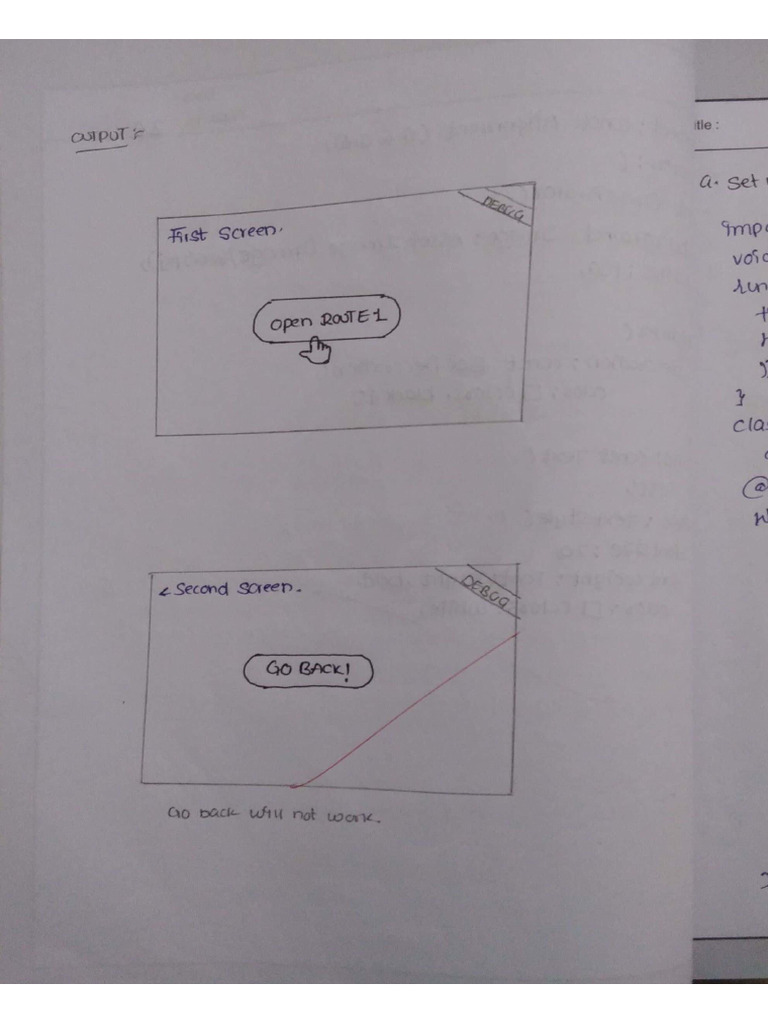 OUTPUT :-
DEBUG
First Screen.
Open ROUTE 1
DEBUG
< Second Screen.
GO BACK!
Go back will not work.
itle :
a. Set
impo
void
run
}
clas
@